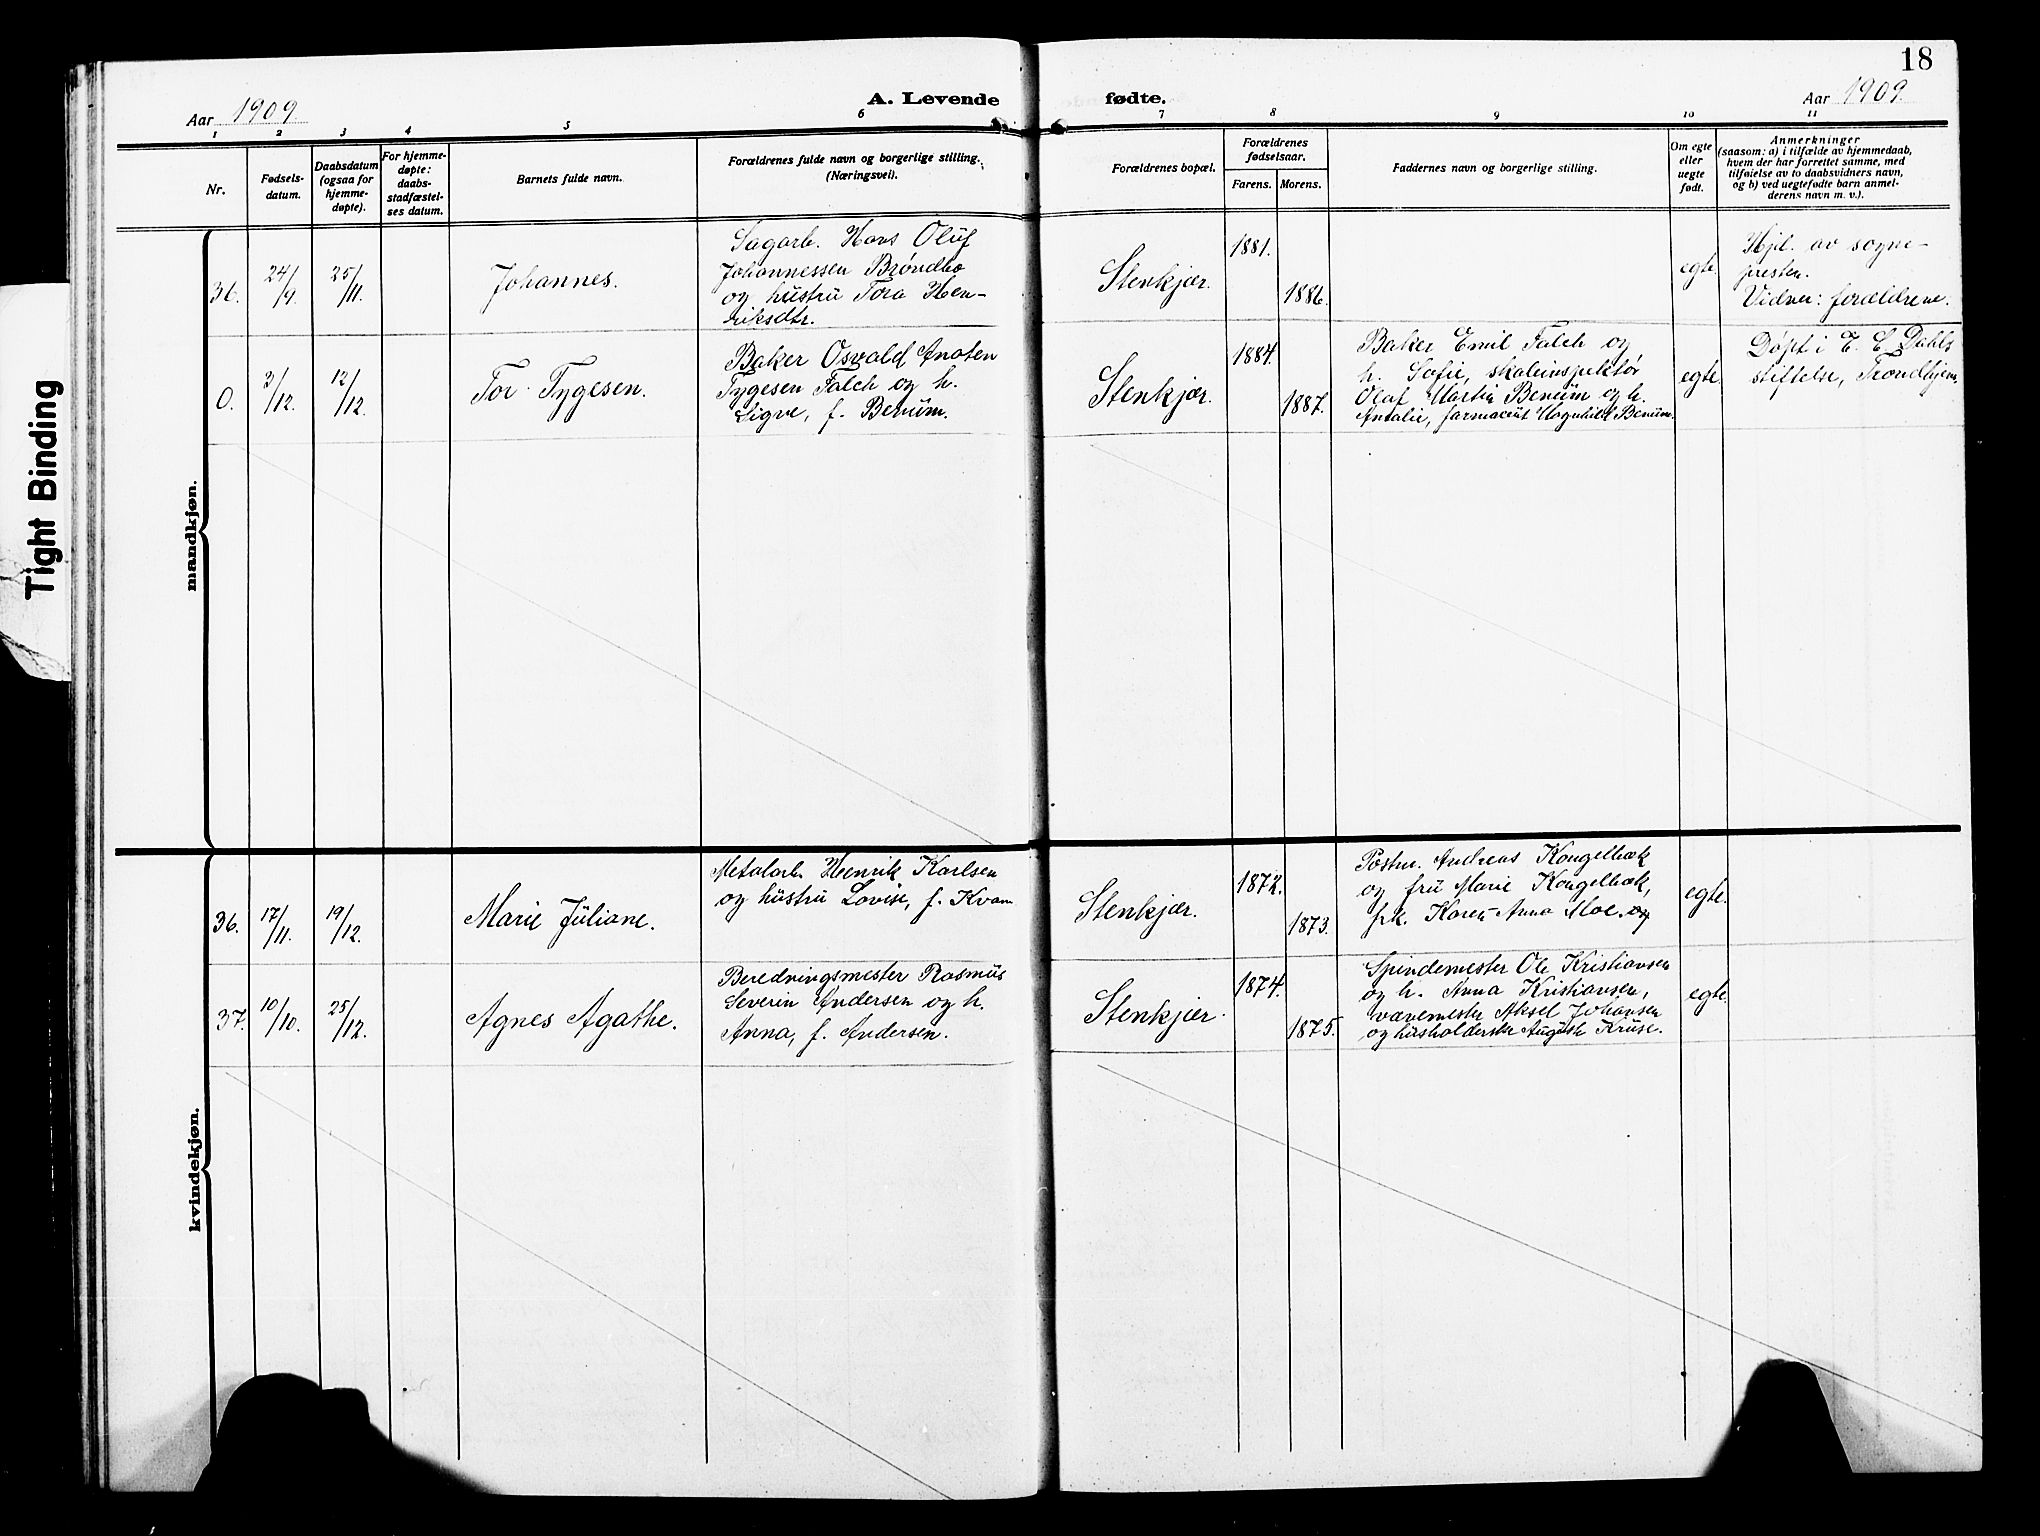 18
Aar 1909.
A. Levende
fødte.
Aar 1909.
1 2 3 4 5 6 7 8 9 10 11
Nr.
Fødsels-
datum.
Daabsdatum
(ogsaa for
hjemme-
døpte).
For hjemme-
døpte:
daabs-
stadfæstel-
ses datum.
Barnets fulde navn.
Forældrenes fulde navn og borgerlige stilling.
(Næringsvei).
Forældrenes bopæl.
Forældrenes
fødselsaar.
Farens. Morens.
Faddernes navn og borgerlige stilling.
Om egte
eller
uegte
født.
Anmerkninger
(saasom: a) i tilfælde av hjemmedaab,
hvem der har forrettet samme, med
tilføielse av to daabsvidners navn,
og b) ved uegtefødte barn anmel-
derens navn m. v.).
mandkjøn.
36.
24/9.
25/11.
Johannes.
Sagarb. Hans Oluf
Johannessen Brøndbo
og hustru Tora Hen-
riksdtr.
Stenkjær.
1881.
1886.
egte
Hjd. av sogne-
presten.
Vidner: forældrene.
0.
3/12.
12/12.
Tor Tygesen.
Baker Osvald Anoten
Tygesen Falch og h.
Signe, f. Benum.
Stenkjær.
1884.
1887.
Baker Emil Falch og
h. Sofie, skoleinspektør
Olaf Martin Benum og h.
Antalie, farmaceut Hagnhild Benum.
egte
Døpt i E. C. Dahls
stiftelse, Trondhjem.
kvindekjøn.
36.
17/11.
19/12.
Marie Juliane.
Metalarb. Henrik Karlsen
og hustru Lovise, f. Kvam
Stenkjær.
1872.
1873.
Postm. Andreas Kongelbæk
og fru Marie Kongelbæk,
frk. Karen Anna Moe. og
egte.
37.
10/10.
25/12.
Agnes Agathe.
Beredningsmester Rasmus
Severin Andersen og h.
Anna, f. Andersen.
Stenkjær.
1874.
1875.
Spindemester Ole Kristiansen
og h. Anna Kristiansen,
vævemester Aksel Johansen
og husholderske Auguste Kruse.
egte.
Tight Binding